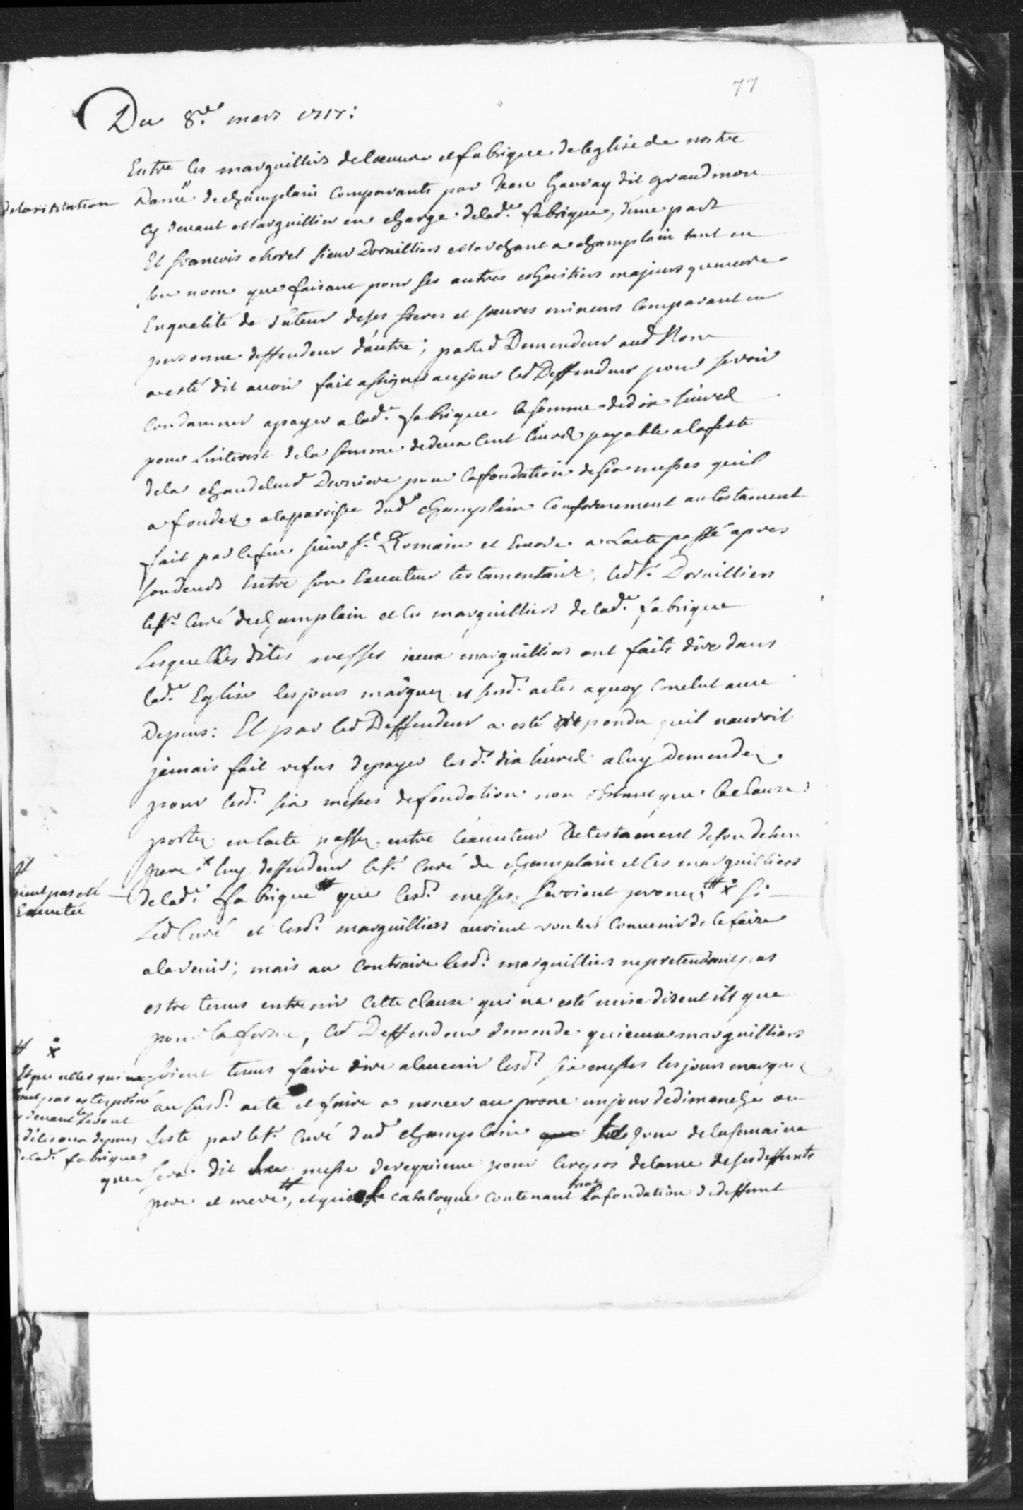 77
Du 8.e mars 1717:
Entre les marguilliers deloeuvre et fabrique de leglise de nostre
delavisitation
Dame de champlain Comparants par Jean hauray dit grandmon
cy devant Marguillier en charge delad.e fabrique, dune part
Et francois chorel sieur Dorvilliers Marchant a champlain tant en
son nom que faisant pour ses autres coheritiers majeurs quencore
Enqualité de tuteur deses freres et soeures mineurs Comparant en
personne deffendeur dautre; par led Demendeur aud Nom
a esté dit avoir fait assigner aujour led Deffendeur pour se voir
Condamner apayer a lad.e fabrique la somme dedix livres
pour Linterest de la somme dedeux Cent livres payable alafeste
dela chandeleur Derniere pour lafondation desix messes quil
a fondez alaparoisse dud champlain Conformement au testament
fait par lefeu sieur s.t Romain et Encore a Lacte passé apres
sondeceds Entre son Executeur testamentaire, led s.r Dorvilliers
les.r Curé dechamplain et les marguilliers de lad.e fabrique
Lesquelles dites messes iceux marguilliers ont faits dire dans
lad.e Eglise les jours marquez es susd. actes aquoy Conclut avec
Depens: Et par led Deffendeur a esté repondu quil nauroit
jamais fait refus depayer lesd. dix livres aluy Demendez
pour lesd. six messes defondation non obstant que la clause
portez en lacte passez entre lexecuteur de testament defeu deson
pere luy deffendeur le s.r Curé de champlain et les marguilliers
nient pas eté
Executée
delad.e fabrique que lesd. messes seroient pronez si
Led Curé et lesd. marguilliers auroient voulus Convenir de le faire
alavenir; mais au Contraire lesd. marguilliers nepretendant pas
estre tenus entretenir Cette clause qui na esté mise disent ils que
pour la forme, led Deffendeur demende queiceux marguilliers
soient tenus faire dire alavenir lesd. six messes les jours marquez
Et que celles qui ne
sont pas este prosné
cy devant seront
dites aux depens
de lad.e fabrique
au susd. acte et faire a noncer au prone unjour dedimanche ou
feste par le s.r Curé dud champlain Jour de la semaine
que sera dit messe derequieme pour lerepos delame desesdeffunts
pere et mere, et qui le catalogue contenant lafondation dedeffunt